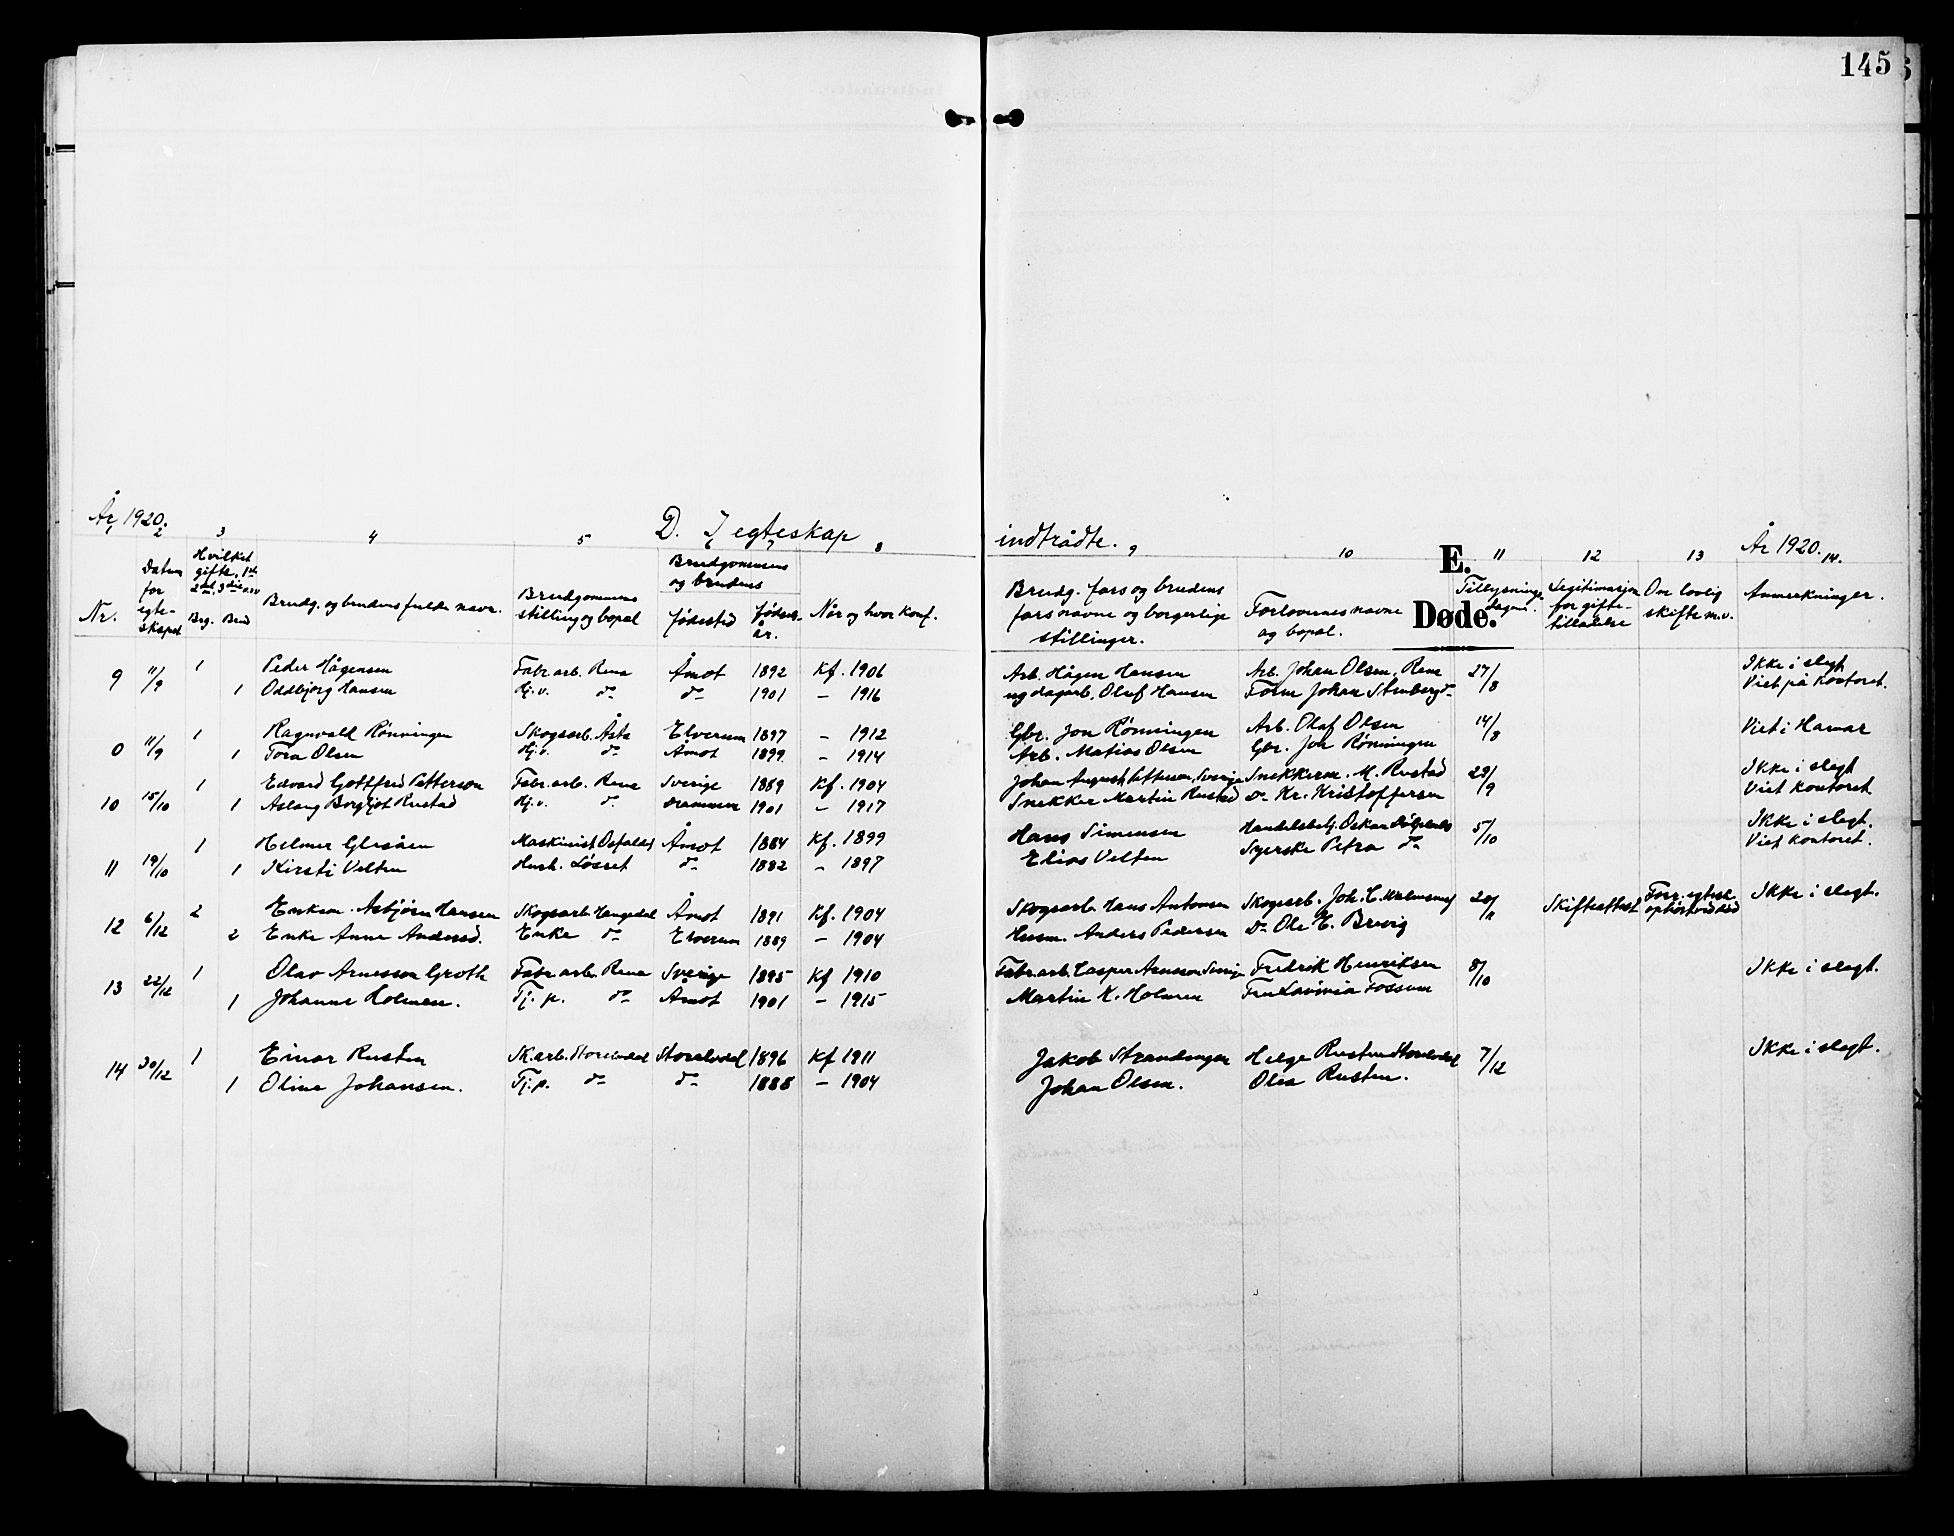 145
År 1920.
D. I egteskap
indtrådte.
År 1920.
E.
Døde.
1 2 3 4 5 6 7 8
9 10 11 12 13 14.
Nr.
Datum for egte-skapet
Hvilket gifte, 1ste 2det, 3die o.s.v
Brg. Brud
Brudg. og brudens fulde navn.
Brudgommens stilling og bopal
Brudgommens og brudens
fødested
fødsels-år.
Når og hvor konf.
Brudg. fars og brudens fars navne og borgerlige stillinger.
Forlovernes navne og bopal.
Tillysnings-dagen.
Legitimasjon for gifte-tilladelse
Om lovlig skifte m.v.
Anmerkninger.
9 11/9 1 Peder Hågensen Fabr. arb. Rena Åmot 1892 Kf. 1906 Arb. Hågen Hansen Arb. Johan Olsen, Rena 27/8 Ikke i slegt
1 Oddbjørg Hansen Hj.v. do do 1901 – 1916 ug dagarb. Oluf Hansen Form Johan Stenberg do Viet på kontoret.
0 11/9 1 Ragnvald Rønningen Skogsarb. Åsta Elverum 1897 – 1912 Gbr. Jon Rønningen Arb. Olaf Olsen 14/8 Viet i Hamar
1 Tora Olsen Hj.v. do Åmot 1899 – 1914 Arb. Matias Olsen Gbr. Jon Rønningen
10 15/10 1 Edvard Gottfred Petterson Fabr. arb. Rena Sverige 1889 Kf. 1904 Johan August Petterson, Sverige Snekkerm. M. Rustad 29/9 Ikke i slegt
1 Aslaug Borgljot Rustad Hj.v. do Drammen 1901 – 1917 Snekker Martin Rustad Do Kr. Kristoffersen Viet kontoret
11 19/10 1 Helmer Glesåen Maskinist Osfallet Åmot 1884 Kf. 1899 Hans Simensen Handelsbetj. Oskar 5/10 Ikke i slegt.
1 Kirsti Velten Hush. Løsset do 1882 – 1897 Elias Velten Syerske Petra do Viet kontoret.
12 6/12 2 Enkem. Asbjørn Hansen Skogsarb. Haugedal Åmot 1891 Kf. 1904 Skogsarb. Hans Antonsen Skogsarb. Joh. C. 20/11 Skifteattest Forr. egtesk. ophørt ved død Ikke i slegt.
2 Enke Anne Andersd. Enke do Elverum 1889 – 1904 Husm. Anders Pedersen Do Ole E. Brevig
13 22/12 1 Olav Arnesson Groth Fabr. arb. Rena Sverige 1895 Kf 1910 Fabr. arb. Casper Arnesson Sverige Fredrik Henriksen 8/10 Ikke i slegt.
1 Johanne Holmen. Tj. p. do Åmot 1901 – 1915 Martin K. Holmen Fru Lavinia Fossum
14 30/12 1 Einar Rusten Sk. arb. Storelvdal Storelvdal 1896 Kf 1911 Jakob Strandengen Helge Rusten Storelvdal 7/12 Ikke i slegt.
1 Oline Johansen. Tj. p. do do 1888 – 1904 Johan Olsen. Olea Rusten.